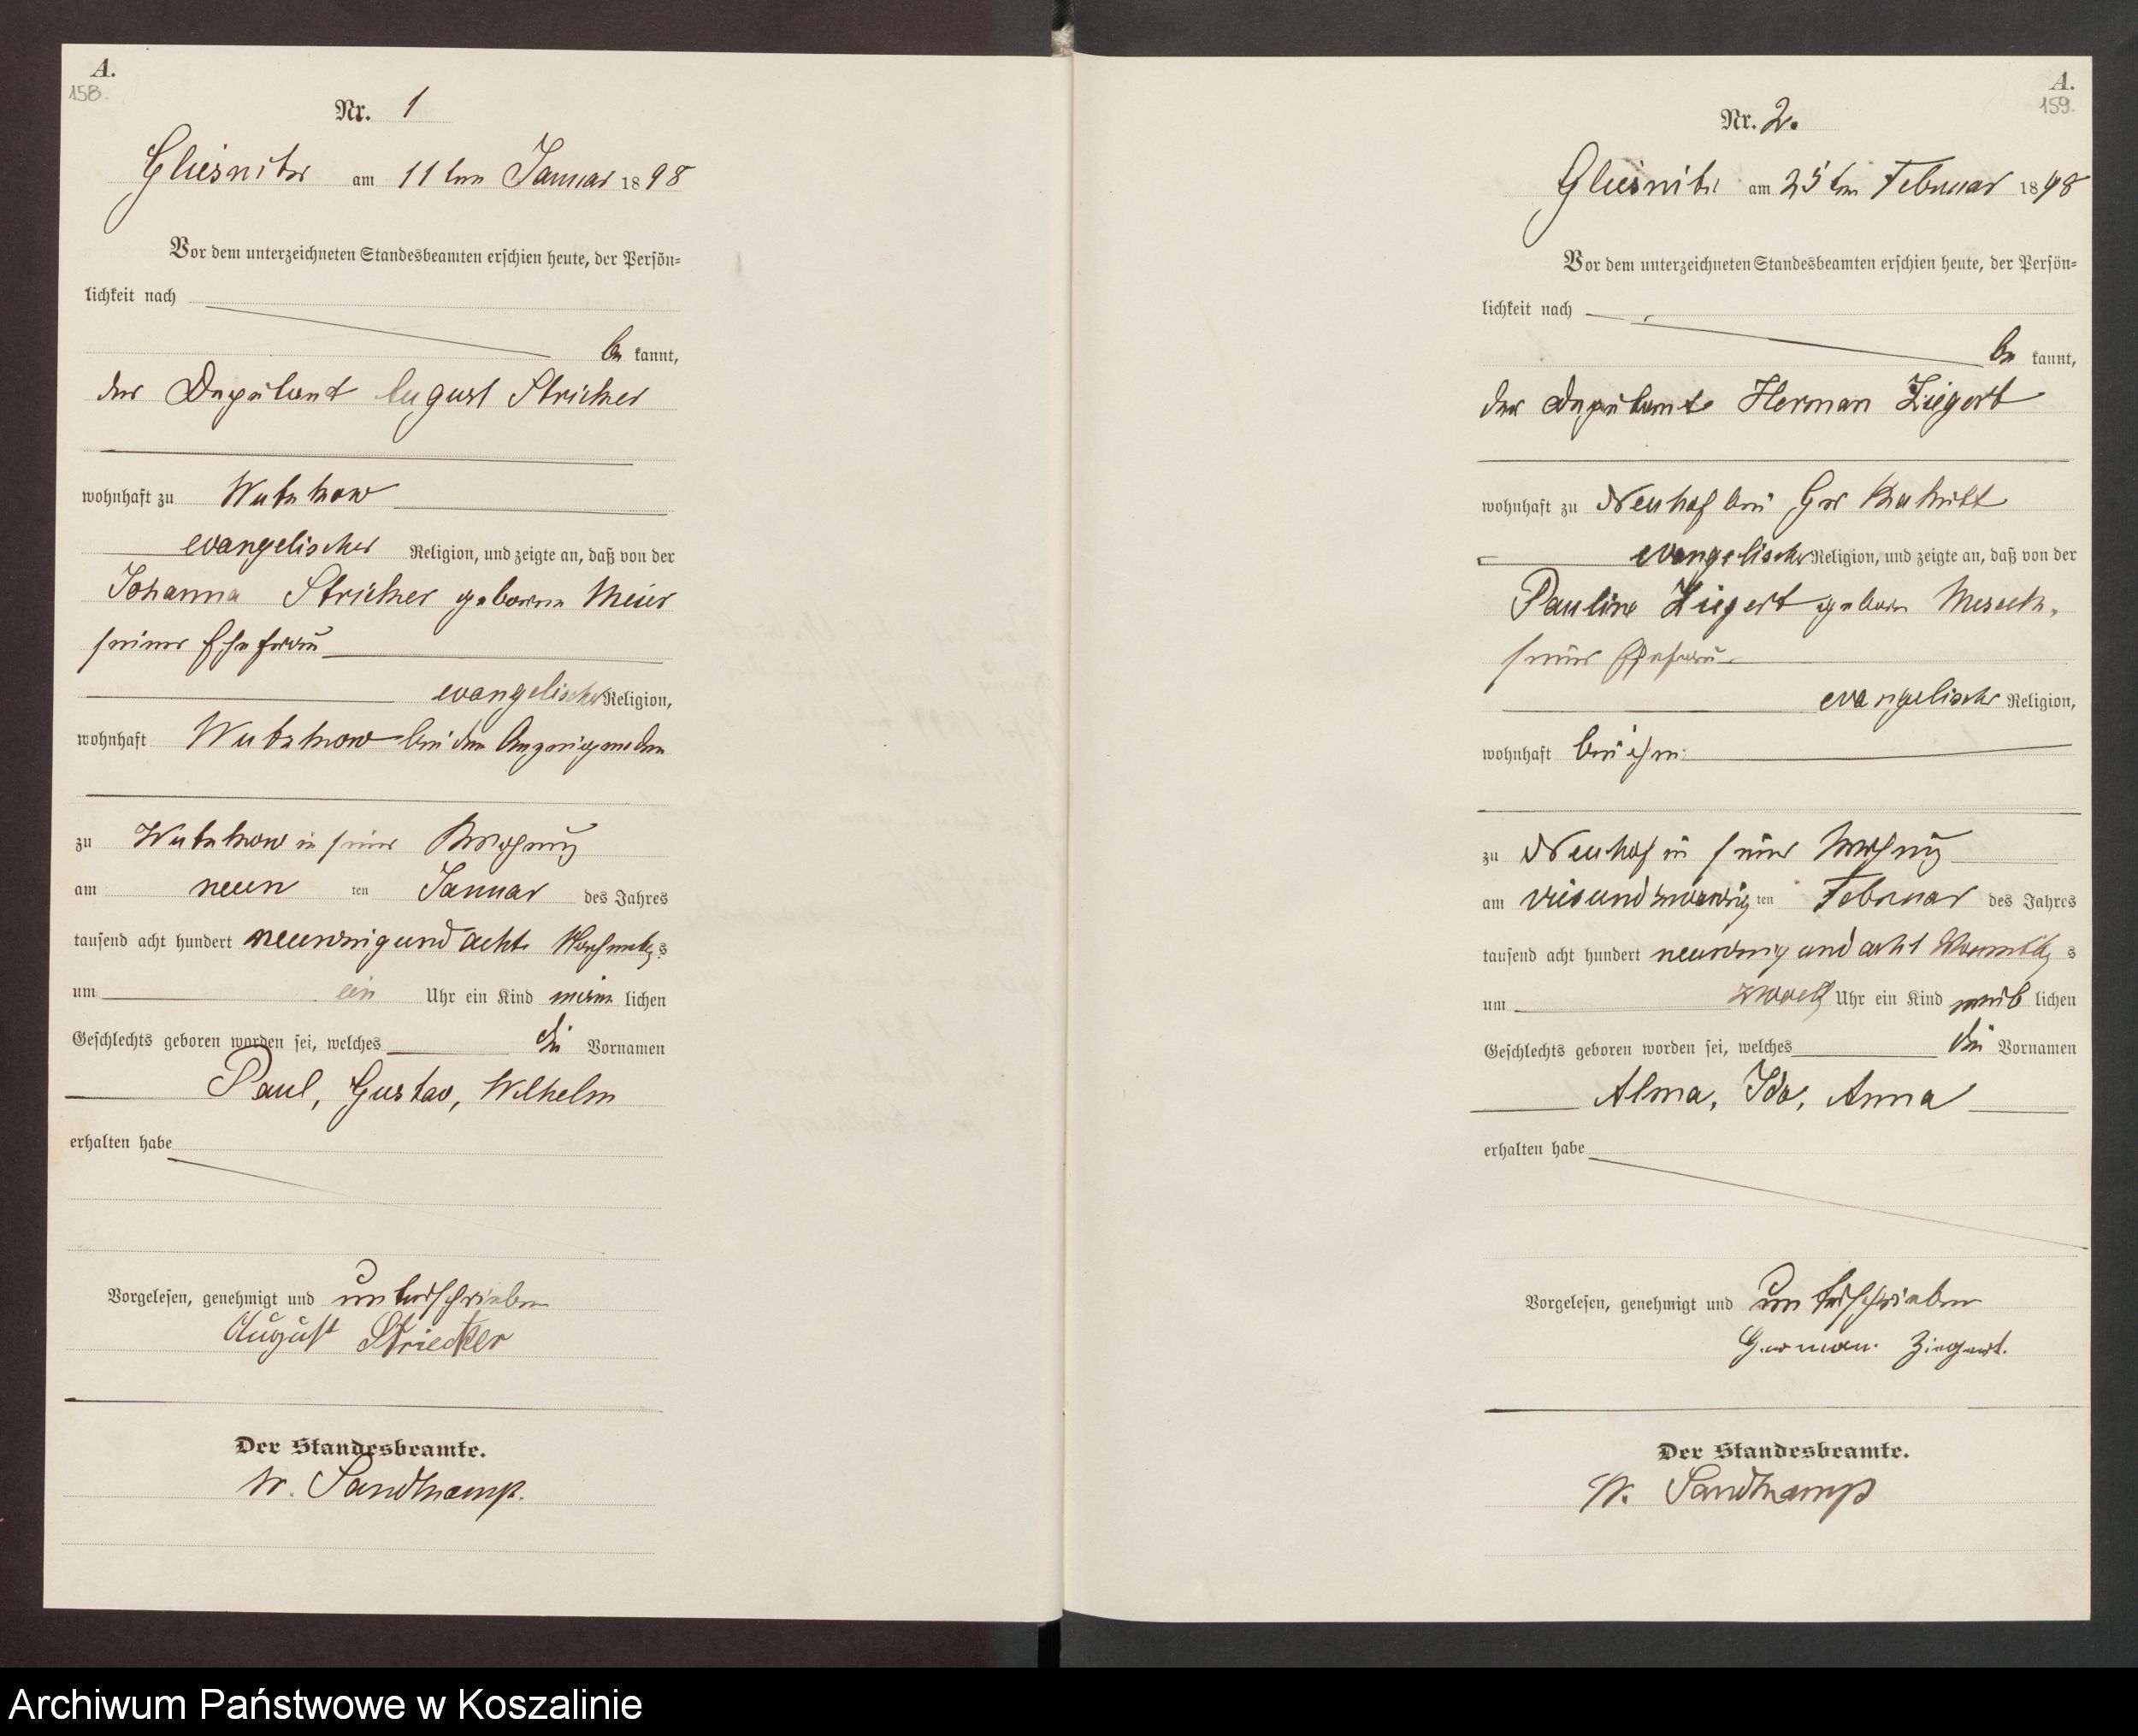 A.
158.
Nr. 1
Gliesnitz am 11ten Januar 1898
Vor dem unterzeichneten Standesbeamten erschien heute, der Persön=
lichkeit nach
be kannt,
der Deputant August Stricker
wohnhaft zu Wutzkow
evangelischer Religion, und zeigte an, daß von der
Johanna Stricker geborene Meier
seiner Ehefrau
evangelischer Religion,
wohnhaft Wutzkow bei dem Anzeigenden
zu Wutzkow in seiner Wohnung
am neun ten Januar des Jahres
tausend acht hundert neunzig und acht Nachmittags
um ein Uhr ein Kind männ lichen
Geschlechts geboren worden sei, welches die Vornamen
Paul, Gustav, Wilhelm
erhalten habe
Vorgelesen, genehmigt und unterschrieben
August Striecker
Der Standesbeamte.
W. Sandkamp.
A.
159.
Nr. 2.
Gliesnitz am 25ten Februar 1898
Vor dem unterzeichneten Standesbeamten erschien heute, der Persön=
lichkeit nach
be kannt,
der Deputant Herman Ziegert
wohnhaft zu Neuhof bei Gr Rakitt
evangelischer Religion, und zeigte an, daß von der
Pauline Ziegert geborne
seiner Ehefrau
evangelischer Religion,
wohnhaft bei ihm
zu Neuhof in seiner Wohnung
am vierundzwanzig ten Februar des Jahres
tausend acht hundert neunzig und acht Vormittags
um zwoelf Uhr ein Kind weib lichen
Geschlechts geboren worden sei, welches die Vornamen
Alma, Ida, Anna
erhalten habe
Vorgelesen, genehmigt und unterschrieben
Herman Ziegert.
Der Standesbeamte.
W. Sandkamp
Archiwum Państwowe w Koszalinie